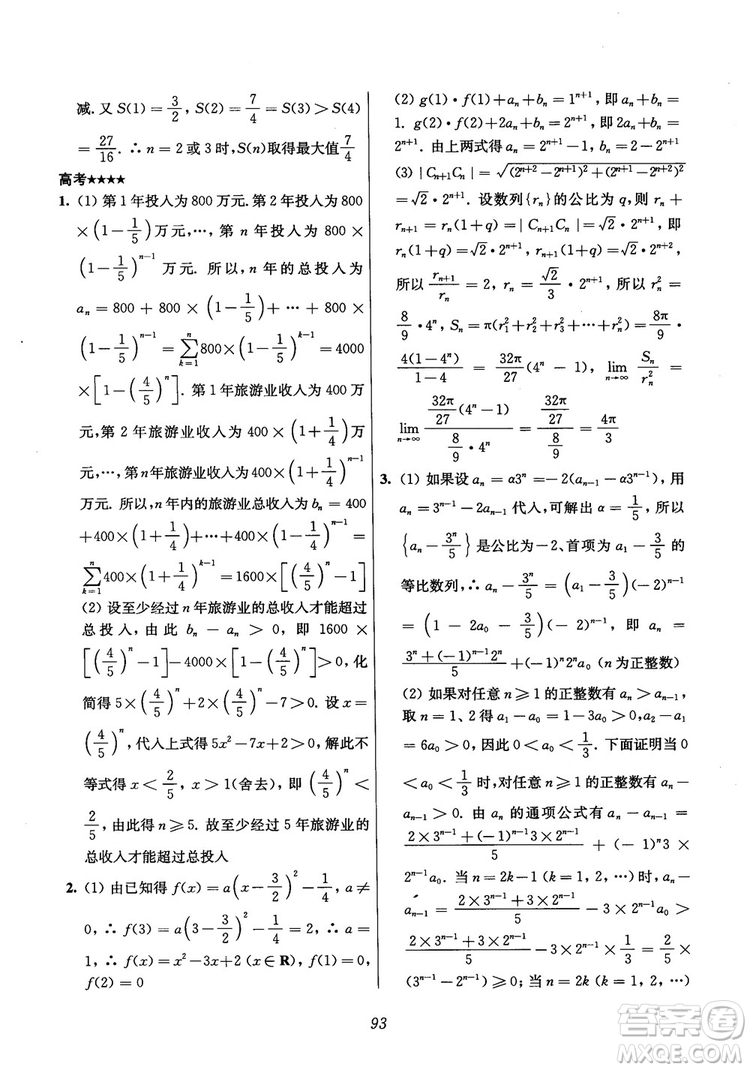 减. 又 S(1) = 3/2, S(2) = 7/4 = S(3) > S(4)
= 27/16. ∴ n = 2 或 3 时, S(n)取得最大值 7/4
高考★★★★
1. (1) 第 1 年投入为 800 万元. 第 2 年投入为 800
× (1 − 1/5) 万元,…, 第 n 年投入为 800 ×
(1 − 1/5)^{n−1} 万元. 所以, n 年的总投入为
a_n = 800 + 800 × (1 − 1/5) + … + 800
× (1 − 1/5)^{n−1} = ∑_{k=1}^{n} 800 × (1 − 1/5)^{k−1} = 4000
× [1 − (4/5)^n]. 第 1 年旅游业收入为 400 万元,
第 2 年旅游业收入为 400 × (1 + 1/4) 万
元,…, 第 n 年旅游业收入为 400 × (1 + 1/4)^{n−1}
万元. 所以, n 年内的旅游业总收入为 b_n = 400
+400×(1 + 1/4)+…+400×(1 + 1/4)^{n−1} =
∑_{k=1}^{n} 400 × (1 + 1/4)^{k−1} = 1600 × [(5/4)^n − 1]
(2) 设至少经过 n 年旅游业的总收入才能超过
总投入, 由此 b_n − a_n > 0, 即 1600 ×
[(4/5)^n − 1] − 4000 × [1 − (4/5)^n] > 0, 化
简得 5 × (4/5)^n + 2 × (4/5)^n − 7 > 0. 设 x =
(4/5)^n, 代入上式得 5x² − 7x + 2 > 0, 解此不
等式得 x < 2/5, x > 1(舍去), 即 (4/5)^n <
2/5, 由此得 n ⩾ 5. 故至少经过 5 年旅游业的
总收入才能超过总投入
2. (1) 由已知得 f(x) = a(x − 3/2)² − 1/4, a ≠
0, ∴ f(3) = a(3 − 3/2)² − 1/4 = 2. ∴ a =
1, ∴ f(x) = x² − 3x + 2 (x ∈ R), f(1) = 0,
f(2) = 0
(2) g(1)·f(1) + a_n + b_n = 1^{n+1}, 即 a_n + b_n =
1. g(2)·f(2) + 2a_n + b_n = 2^{n+1}, 即 2a_n + b_n =
2^{n+1}. 由上两式得 a_n = 2^{n+1} − 1, b_n = 2 − 2^{n+1}
(3) |C_{n+1}C_n| = √((2^{n+2} − 2^{n+1})² + (2^{n+1} − 2^{n+2})²)
= √2·2^{n+1}. 设数列{r_n}的公比为 q, 则 r_n +
r_{n+1} = r_n(1+q) = |C_{n+1}C_n| = √2·2^{n+1}, 即
r_n(1+q) = √2·2^{n+1}. r_{n+1}(1+q) = √2·2^{n+2},
所以 r_{n+1}/r_n = 2, r_n = √2/3·2^{n+1}, 所以 r_n² =
8/9·4^n, S_n = π(r_1² + r_2² + … + r_n²) = 8π/9·
4(1−4^n)/(1−4) = 32π/27(4^n − 1), 所以, lim_{n→∞} S_n/r_n² =
lim_{n→∞} (32π/27(4^n − 1))/(8/9·4^n) = 4π/3
3. (1) 如果设 a_n − α3^n = −2(a_{n−1} − α3^{n−1}), 用
a_n = 3^{n−1} − 2a_{n−1} 代入, 可解出 α = 1/5, 所以
{a_n − 3^n/5} 是公比为 −2、首项为 a_1 − 3/5 的
等比数列, ∴ a_n − 3^n/5 = (a_1 − 3/5)(−2)^{n−1}
= (1 − 2a_0 − 3/5)(−2)^{n−1}, 即 a_n =
(3^n + (−1)^{n−1}2^n)/5 + (−1)^n 2^n a_0 (n 为正整数)
(2) 如果对任意 n ⩾ 1 的正整数有 a_n > a_{n−1},
取 n = 1、2 得 a_1 − a_0 = 1 − 3a_0 > 0, a_2 − a_1
= 6a_0 > 0, 因此 0 < a_0 < 1/3. 下面证明当 0
< a_0 < 1/3 时, 对任意 n ⩾ 1 的正整数有 a_n −
a_{n−1} > 0. 由 a_n 的通项公式有 a_n − a_{n−1} =
(2×3^{n−1} + (−1)^{n−1}3×2^{n−1})/5 + (−1)^n 3 ×
2^{n−1}a_0. ① 当 n = 2k−1 (k = 1, 2,…)时, a_n −
a_{n−1} = (2×3^{n−1} + 3×2^{n−1})/5 − 3×2^{n−1}a_0 >
(2×3^{n−1} + 3×2^{n−1})/5 − 3×2^{n−1} × 1/3 = 2/5
(3^{n−1} − 2^{n−1}) ⩾ 0; ② 当 n = 2k(k = 1, 2,…)
93
答案圈
MXQE.COM